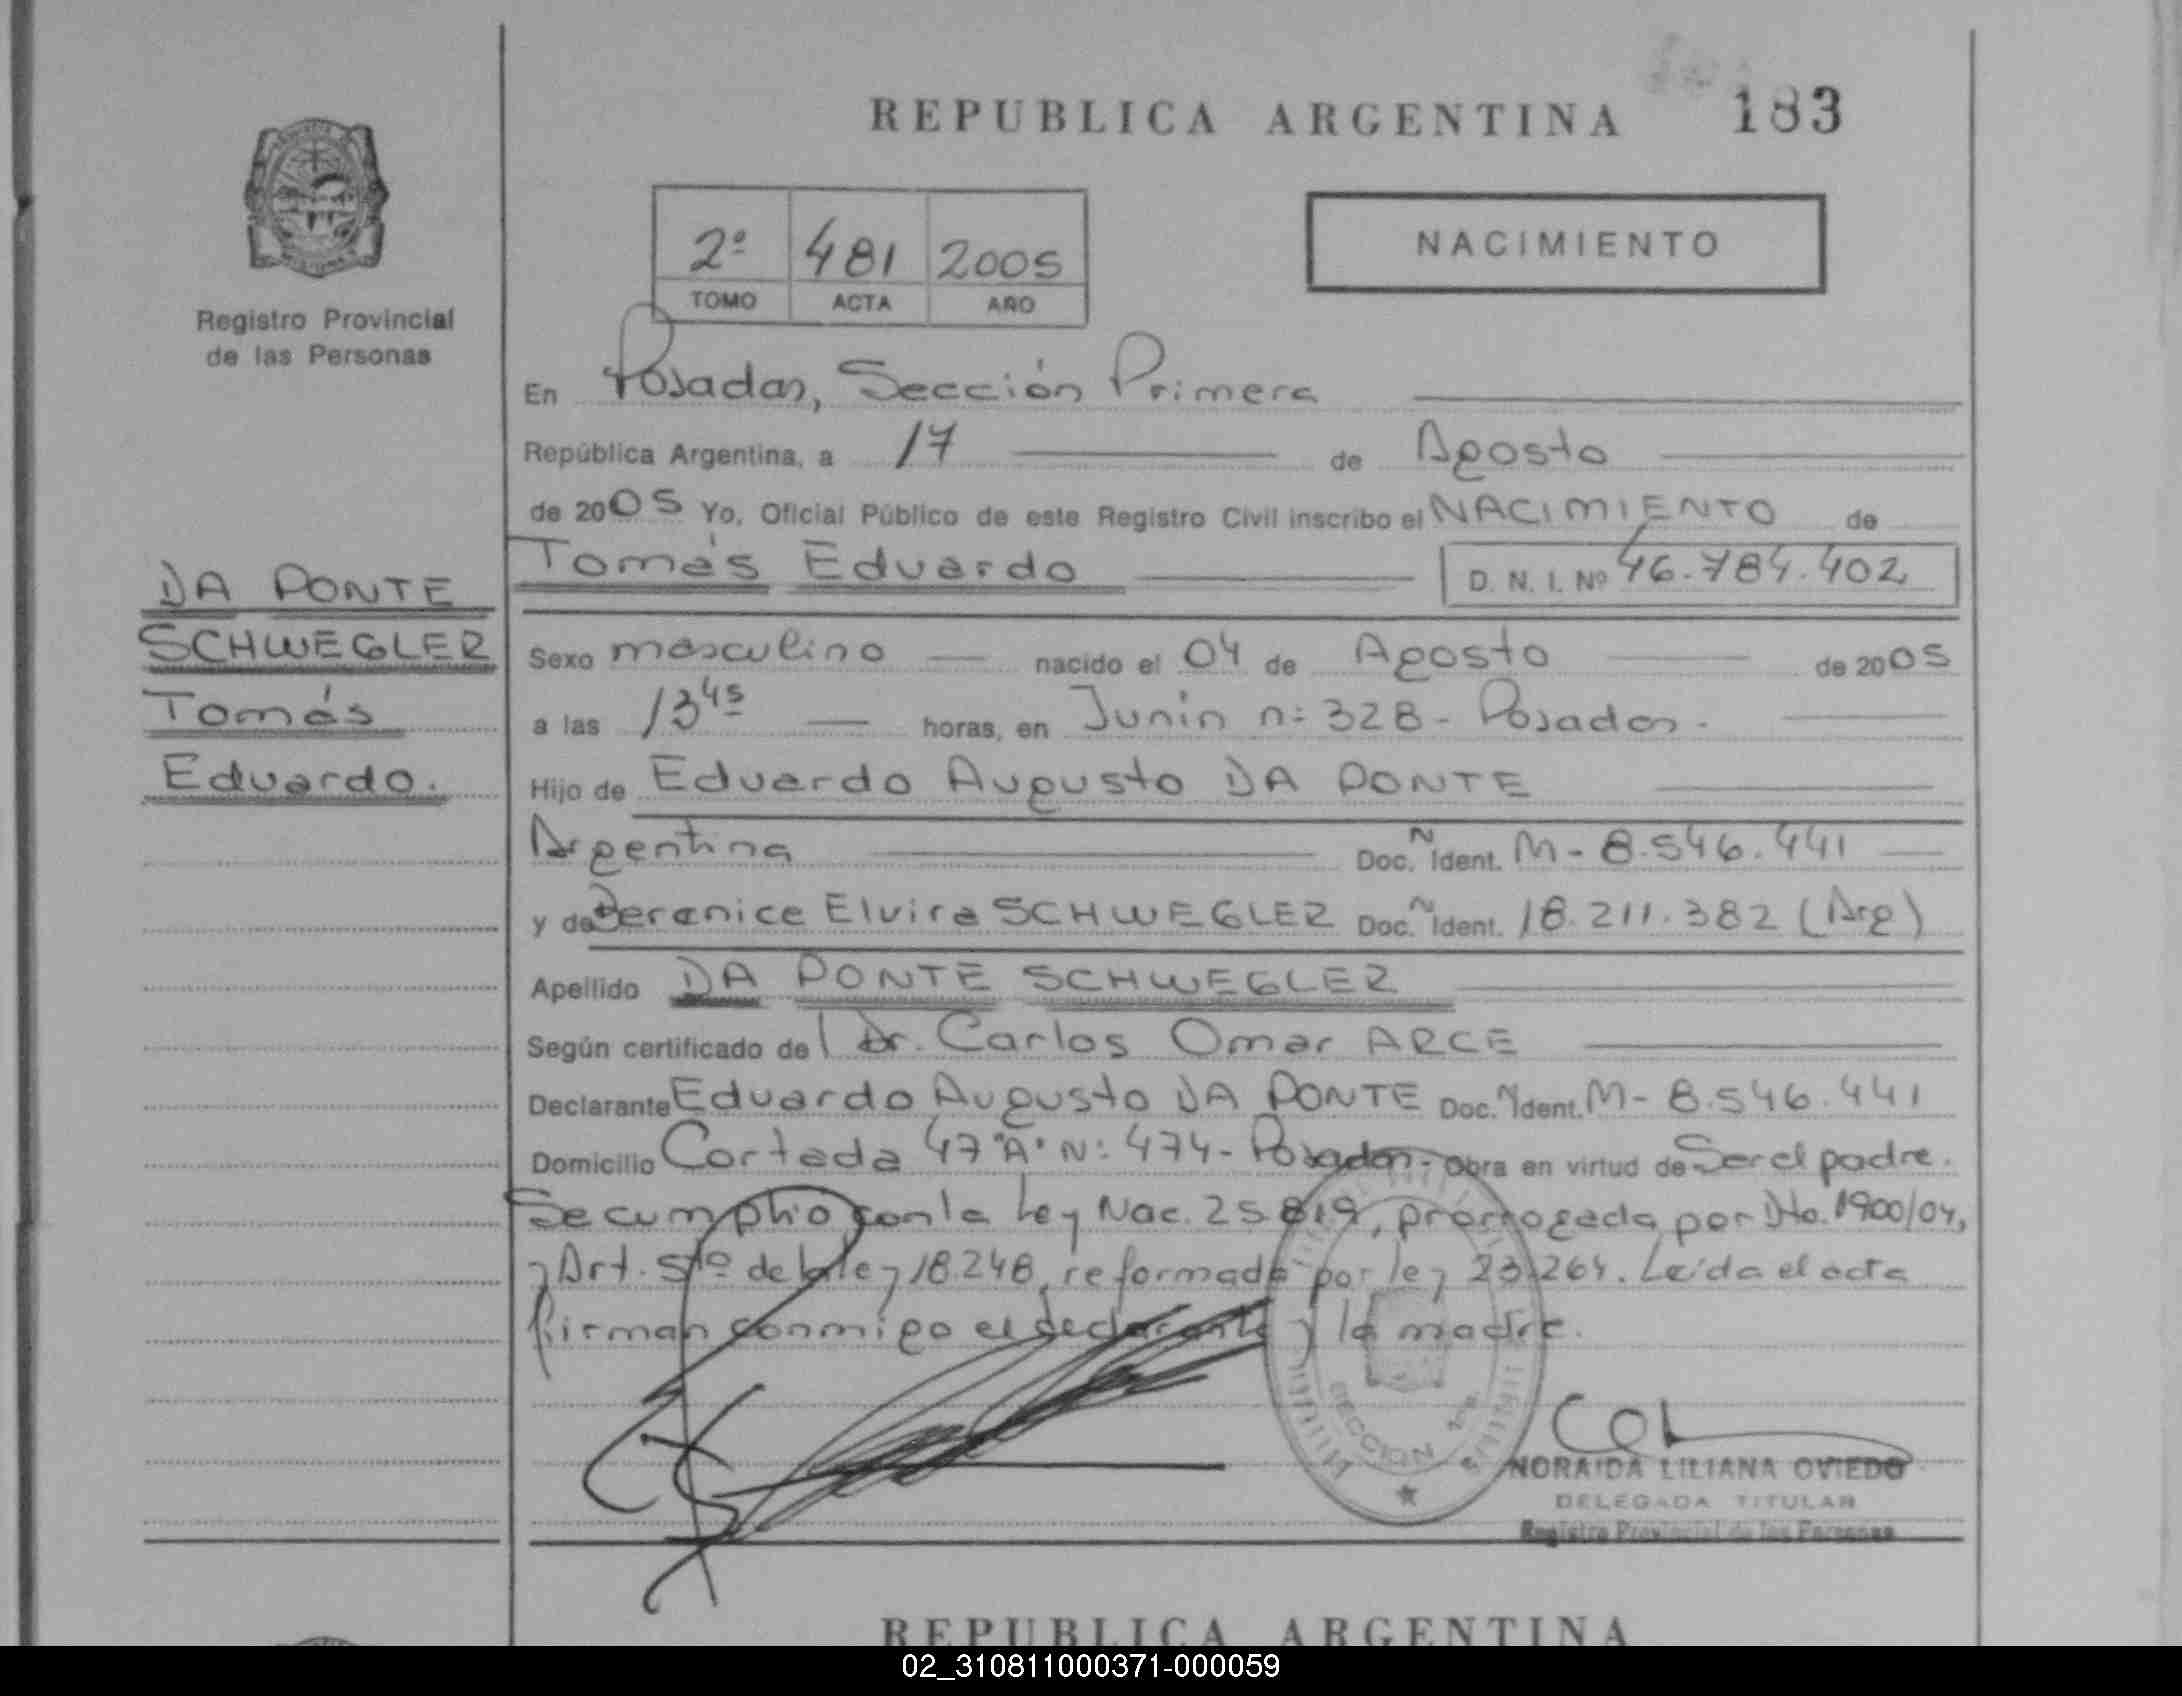 REPUBLICA ARGENTINA 183
Registro Provincial
de las Personas
2º 481 2005
TOMO ACTA AÑO
NACIMIENTO
En Posadas, Sección Primera
República Argentina, a 17 de Agosto
de 2005 Yo, Oficial Público de este Registro Civil inscribo el NACIMIENTO de
Tomás Eduardo D. N. I. Nº 46.784.402
DA PONTE
SCHWEGLER
Tomás
Eduardo.
Sexo masculino nacido el 04 de Agosto de 2005
a las 13 45 horas, en Junín nº 328 - Posadas.
Hijo de Eduardo Augusto DA PONTE
Argentina Doc. N Ident. M - 8.546.441
y de Berenice Elvira SCHWEGLER Doc. N Ident. 18.211.382 (Arg)
Apellido DA PONTE SCHWEGLER
Según certificado de Dr. Carlos Omar ARCE
Declarante Eduardo Augusto DA PONTE Doc. N Ident. M - 8.546.441
Domicilio Cortada 47 "A" Nº 474 - Posadas - Obra en virtud de Ser el padre.
Se cumplió con la Ley Nac. 25.819, prorrogada por Dto. 1900/04,
y Art. 5to de la ley 18.248, reformada por ley 23.264. Leída el acta
firman conmigo el declarante y la madre.
SECCION 1ra.
NORAIDA LILIANA OVIEDO
DELEGADA TITULAR
Registro Provincial de las Personas
REPUBLICA ARGENTINA
02_310811000371-000059